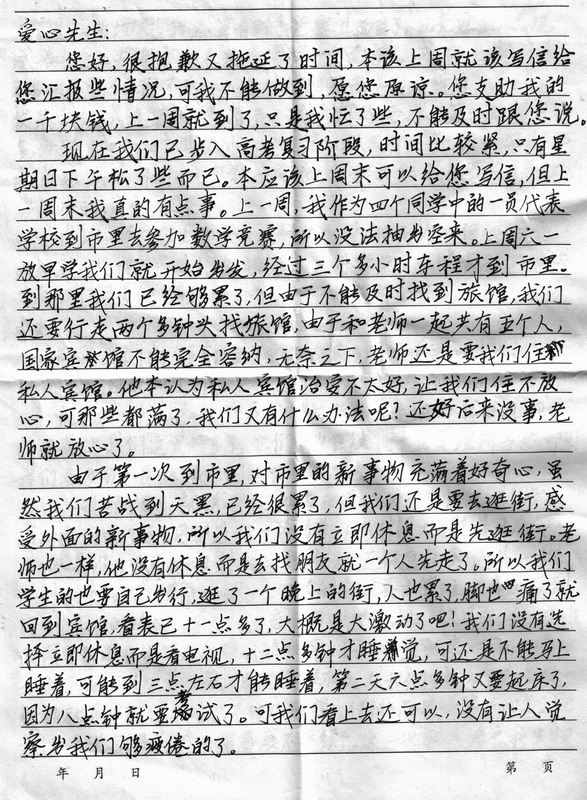 爱心先生:
您好,很抱歉又拖延了时间,本该上周就该写信给
您汇报些情况,可我不能做到,愿您原谅。您支助我的
一千块钱,上一周就到了,只是我忙了些,不能及时跟您说。
现在我们已步入高考复习阶段,时间比较紧,只有星
期日下午松了些而已。本应该上周末可以给您写信,但上
一周末我真的有点事。上一周,我作为四个同学中的一员代表
学校到市里去参加数学竞赛,所以没法抽出空来。上周六一
放早学我们就开始出发,经过三个多小时车程才到市里。
到那里我们已经够累了,但由于不能及时找到旅馆,我们
还要行走两个多钟头找旅馆,由于和老师一起共有五个人,
国家宾馆不能完全容纳,无奈之下,老师还是要我们住
私人宾馆。他本认为私人宾馆治安不太好,让我们住不放
心,可那些都满了,我们又有什么办法呢?还好后来没事,老
师就放心了。
由于第一次到市里,对市里的新事物充满着好奇心,虽
然我们苦战到天黑,已经很累了,但我们还是要去逛街,感
受外面的新事物,所以我们没有立即休息而是先逛街。老
师也一样,他没有休息而是去找朋友就一个人先走了。所以我们
学生的也要自己出行,逛了一个晚上的街,人也累了,脚也痛了就
回到宾馆,看表已十一点多了,大概是太激动了吧!我们没有选
择立即休息而是看电视,十二点多钟才睡觉,可还是不能马上
睡着,可能到三点左右才能睡着,第二天六点多钟又要起床了,
因为八点钟就要考试了。可我们看上去还可以,没有让人觉
察出我们够疲倦的了。
年 月 日 第 页